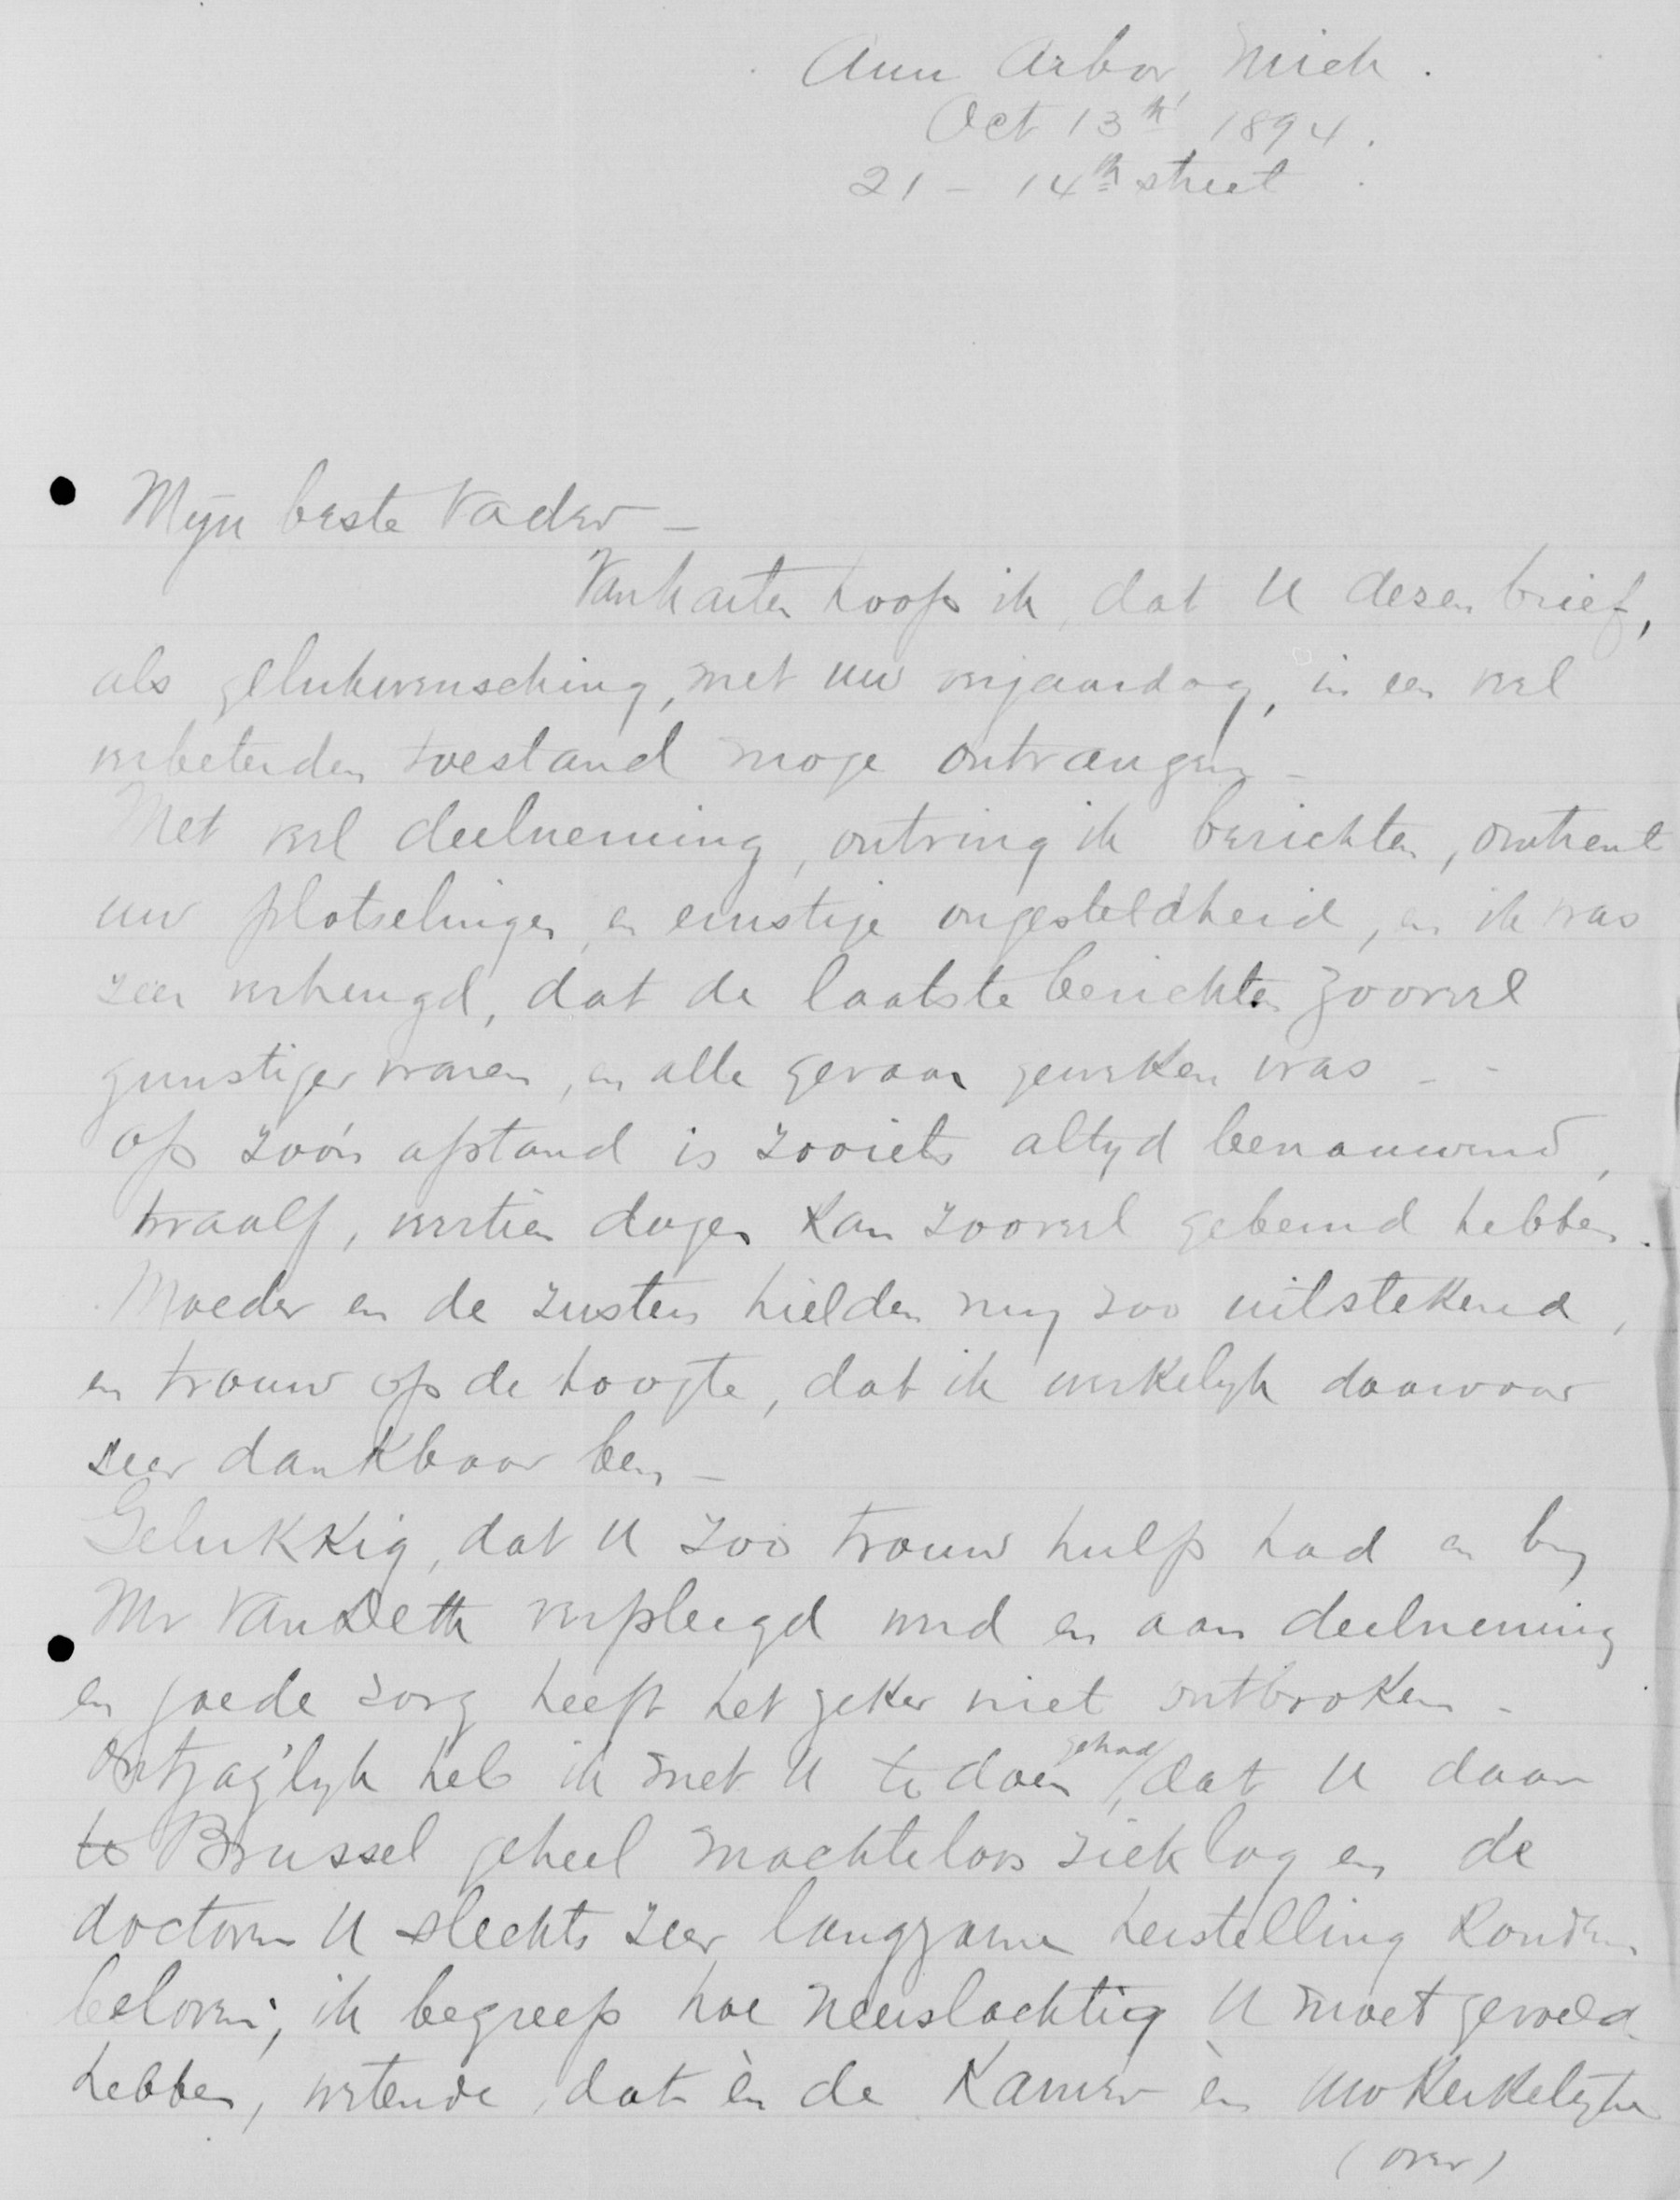 Ann Arbor, Mich.
Oct 13th 1894.
21 - 14th street
Mijn beste Vader -
Van harten hoop ik, dat U dezen brief,
als gelukwensching, met uw verjaardag, in een veel
verbeterden toestand moge ontvangen -
Met veel deelneming, ontving ik berichten, omtrent
uw plotselinge, en ernstige ongesteldheid, en ik was
zeer verheugd, dat de laatste berichten zooveel
gunstiger waren, en alle gevaar geweken was - -
op zóó'n afstand is zooiets altyd benauwend,
twaalf, veertien dagen kan zooveel gebeurd hebben.
Moeder en de zusters hielden my zoo uitstekend,
en trouw op de hoogte, dat ik werkelyk daarvoor
zeer dankbaar ben -
Gelukkig, dat U zoo trouw hulp had en by
Mr Van Deth verpleegd werd en aan deelneming
en goede zorg heeft het zeker niet ontbroken -
Ontzag'lyk heb ik met U te doen gehad, dat U daar
te Brussel geheel machteloos ziek lag en de
doctoren U slechts zeer langzame herstelling konden
beloven; ik begreep hoe neerslachtig U moet gevoeld
hebben, wetende, dat èn de Kamer èn uw Kerkelyke
(over)